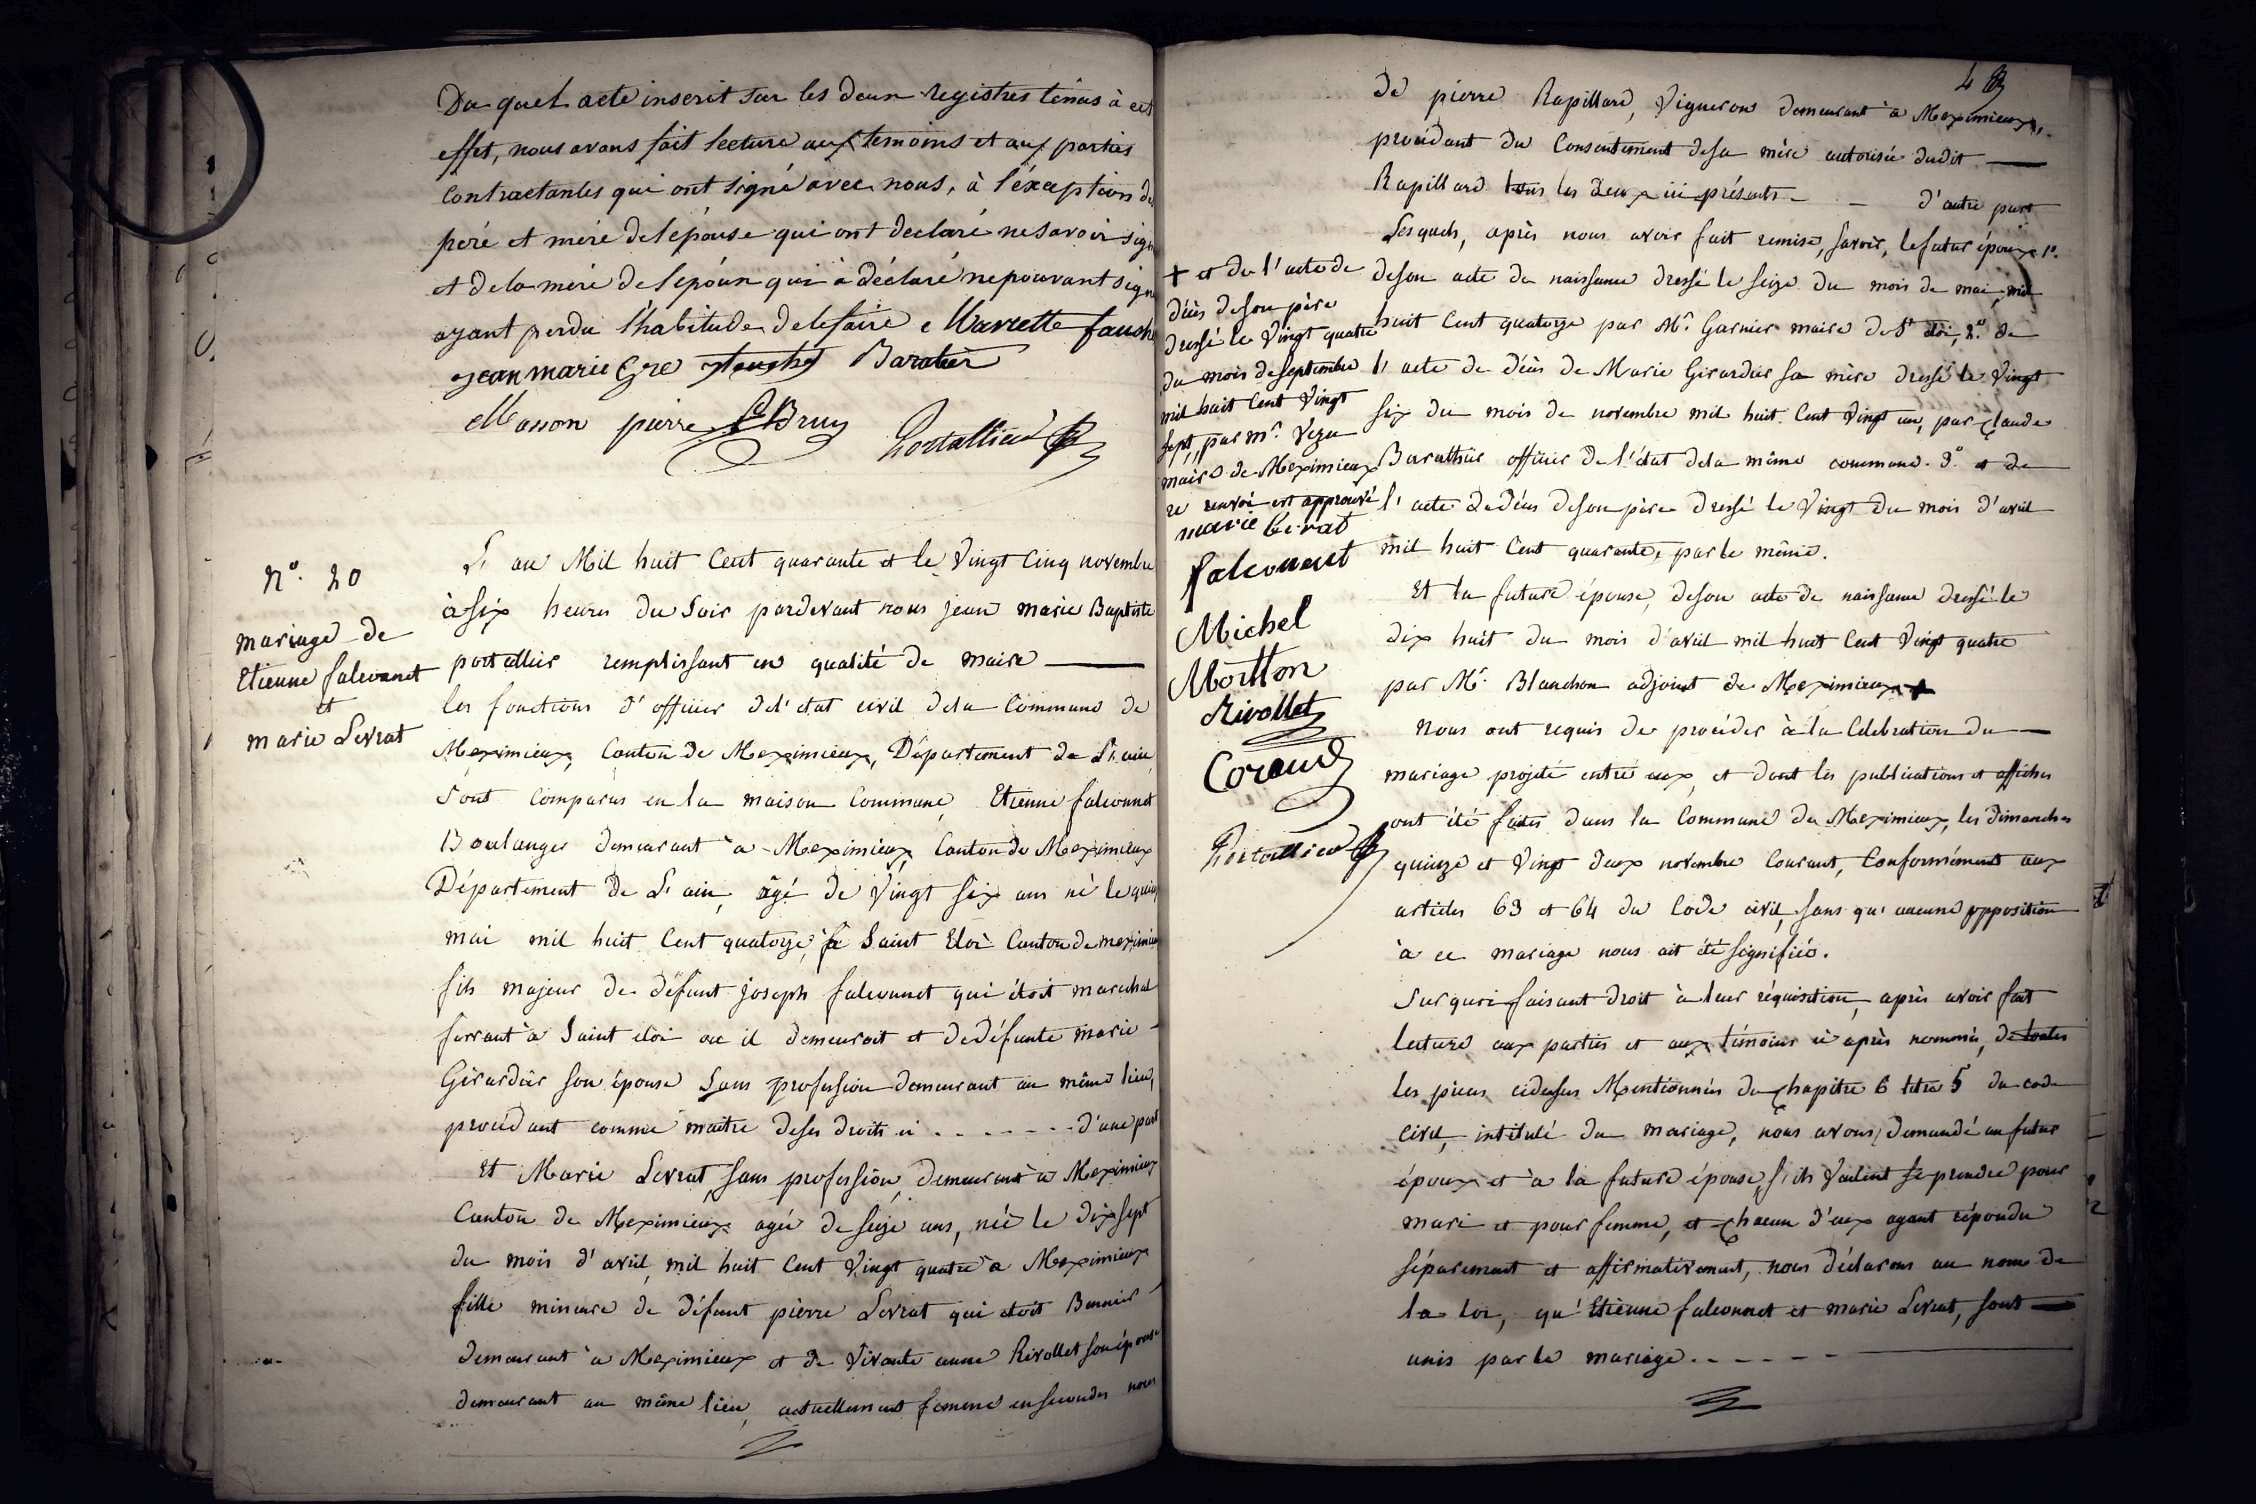 Du quel acte inscrit sur les deux registres tenus à cet
effet, nous avons fait lecture aux temoins et aux parties
Contractantes qui ont signé avec nous, à l'éxception de
peré et meré de l'épouse qui ont declaré ne savoir sign
et de la meré de l'epoux qui à déclaré ne pouvant sign
ayant perdu l'habitude de le faire Mariette fauche
jean marie Gre Baratier
Masson pierre Brun Portallier
N.o 20
mariage de
Etienne falconnet
et
marie Levrat
L'an Mil huit Cent quarante et le Vingt Cinq novembre
à Six heures du Soir pardevant nous jean marie Baptiste
portallier remplissant en qualité de maire
les fonctions d'officier de l'état civil dela Commune de
Meximieux, Canton de Meximieux, Département de L'ain,
Sont Comparus en la maison Commune, Etienne falconnet
Boulanger demeurant à Meximieux, Canton de Meximieux
Département de L'ain, âgé de Vingt Six ans né le quinze
mai mil huit Cent quatorze, à Saint Eloi Canton de meximieux
fils majeur de défunt joseph falconnet qui étoit marechal
ferrant à Saint eloi ou il demeuroit et de défunte marie
Girardier son épouse Sans profession demeurant au même lieu,
procédant comme maitre deses droits ci . . . . . . . d'une part
Et Marie Levrat, Sans profession, demeurant à Meximieux
Canton de Meximieux agée de Seize ans, née le dix sept
du mois d'avril, mil huit Cent Vingt quatre à Meximieux
fille mineure de défunt pierre Levrat qui étoit
demeurant à Meximieux et de Vivante anne Rivollet son épouse
demeurant au même lieu, actuellement femme en secondes noces
4
de pierre Rapillard, Vigneron demeurant à Meximieux,
procédant du Consentement desa mère autorisée dudit
Rapillard tous les deux ici présents d'autre part
Lesquels, après nous avoir fait remise, Savoir, le futur époux 1.o
deson acte de naissance dressé le Seize du mois de mai mil
huit Cent quatorze par M.r Garnier maire de St Eloi, 2.o de
l'acte de décès de Marie Girardier sa mère dressé le Vingt
six du mois de novembre mil huit Cent Vingt un, par Claude
Barathier officier de l'état dela même commune. 3.o et de
l'acte de décès deson père dressé le Vingt du mois d'avril
mil huit Cent quarante, par le même.
Et la future épouse, deson acte de naissance dressé le
dix huit du mois d'avril mil huit Cent Vingt quatre
par M.r Blanchon adjoint de Meximieux +
Nous ont requis de procéder à la Célébration du
mariage projeté entre eux, et dont les publications et affiches
ont été faites dans la Commune de Meximieux, les dimanches
quinze et Vingt deux novembre Courant, Conformément aux
articles 63 et 64 du Code civil, Sans qu'aucune opposition
à ce mariage nous ait été signifiée.
Sur quoi faisant droit à leur réquisition, après avoir fait
lecture aux parties et aux témoins ci après nommés, de toutes
les pièces cidessus Mentionnées du Chapitre 6 titre 5 du code
civil, intitulé du mariage, nous avons demandé au futur
époux et à la future épouse, S'ils Veulent se prendre pour
mari et pour femme, et Chacun d'eux ayant répondu
séparement et affirmativement, nous déclarons au nom de
la loi, qu'Etienne falconnet et marie Levrat, sont
unis par le mariage . . . . .
+ et de l'acte de
décès deson père
dressé le Vingt quatre
du mois de Septembre
mil huit Cent Vingt
Sept, par m.r Vezu
maire de Meximieux
ce renvoi est approuvé
marie levrat
falconnet
Michel
Motton
Rivollet
Corand
Portallier